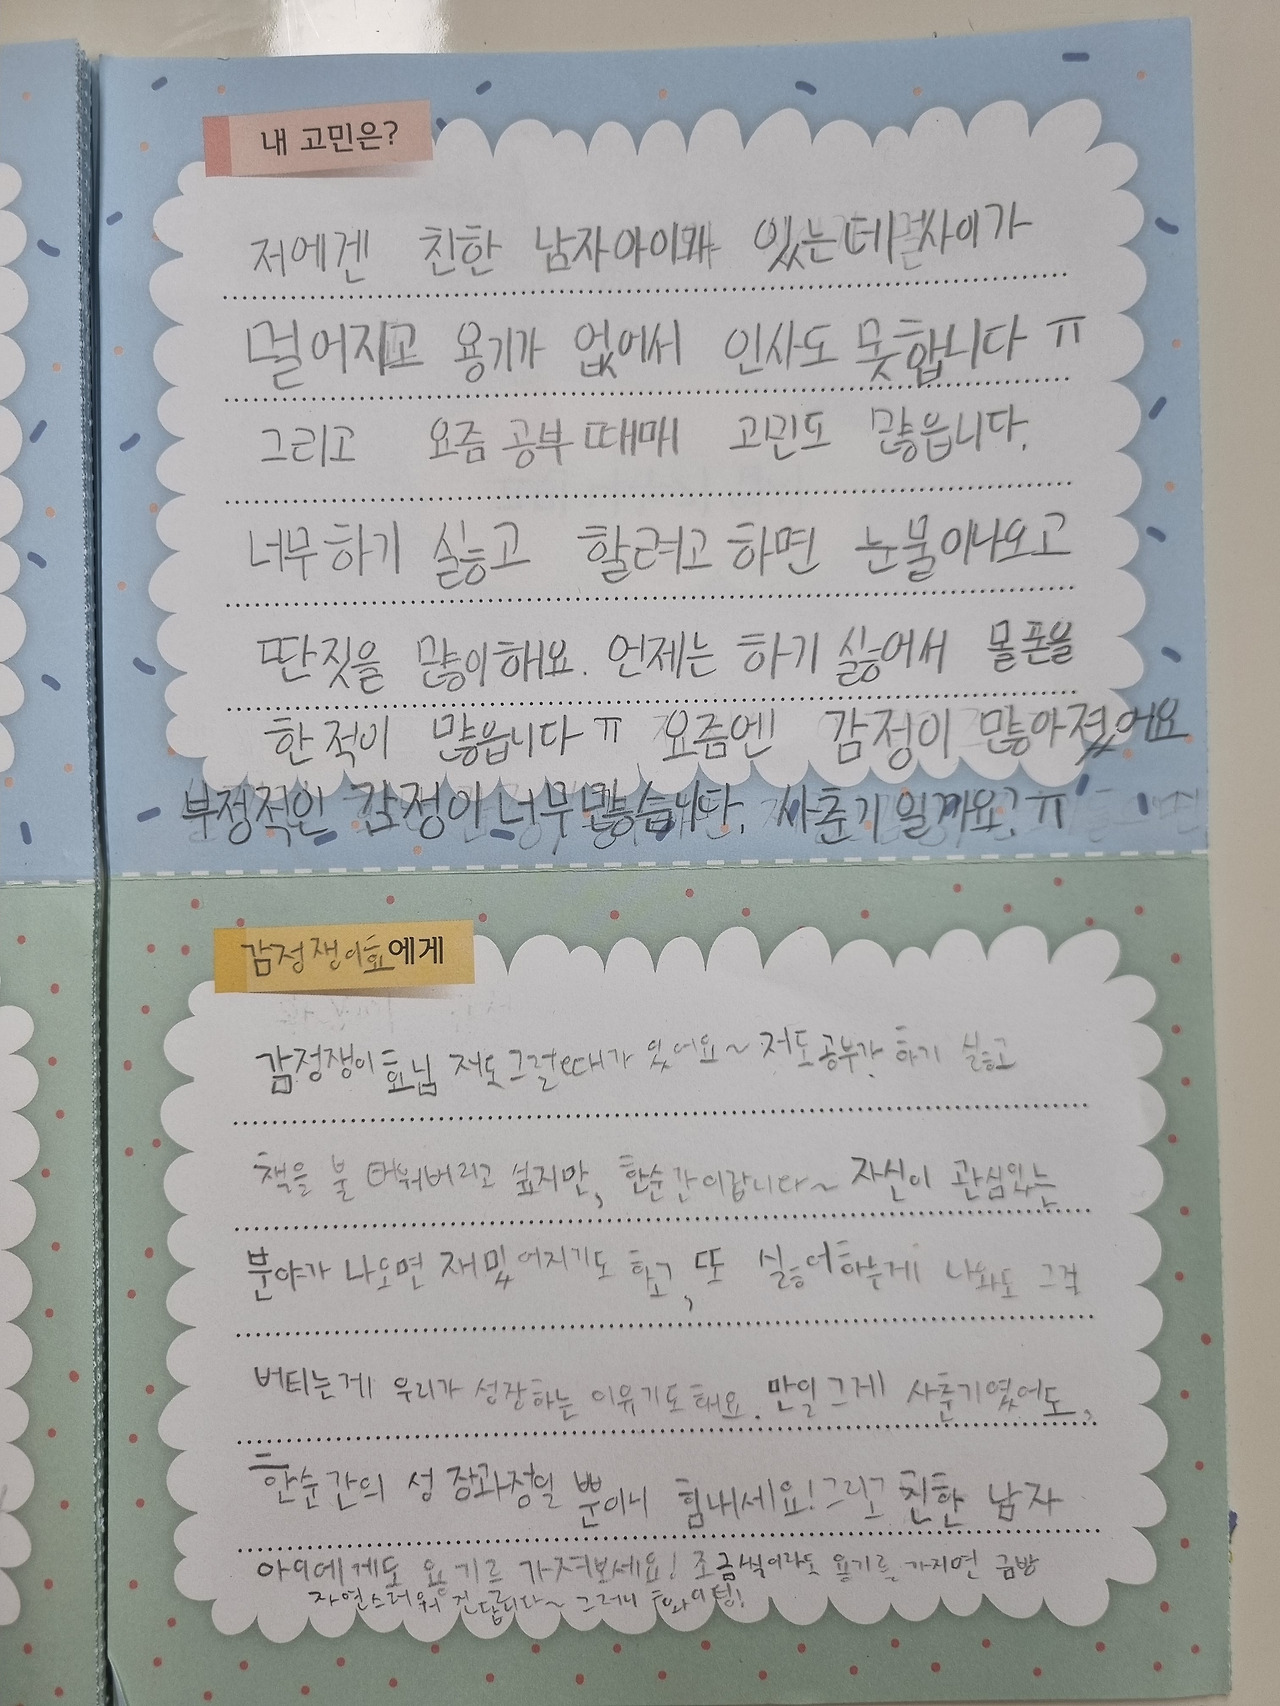 내 고민은?
저에겐 친한 남자아이와 있는데 사이가
멀어지고 용기가 없어서 인사도 못합니다 ㅠ
그리고 요즘 공부 때매 고민도 많습니다.
너무 하기 싫고 할려고 하면 눈물이나오고
딴짓을 많이해요. 언제는 하기 싫어서 몰폰을
한적이 많습니다 ㅠ 요즘엔 감정이 많아졌어요
부정적인 감정이 너무많습니다. 사춘기일까요? ㅠ
감정쟁이효에게
감정쟁이 효님 저도 그럴때가 있어요~ 저도 공부가 하기 싫고
책을 불 태워버리고 싶지만, 한순간이랍니다~ 자신이 관심있는
분야가 나오면 재밌어지기도 하고, 또 싫어하는게 나와도 그걸
버티는게 우리가 성장하는 이유기도해요. 만일 그게 사춘기였어도,
한순간의 성장과정일 뿐이니 힘내세요! 그리고 친한 남자
아이에게도 용기를 가져보세요! 조금씩이라도 용기를 가지면 금방
자연스러워 진답니다~ 그러니 화이팅!